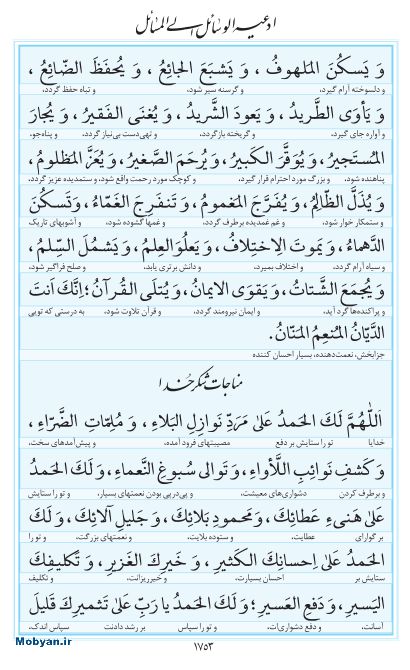 ادعیه الوسائل الی المسائل
وَ یَسکُنَ المَلهوفُ ، وَ یَشبَعَ الجائِعُ ، وَ یُحفَظَ الضّائِعُ ،
و دلسوخته آرام گیرد، و گرسنه سیر شود، و تباه حفظ گردد،
وَ یَأوَی الطَّریدُ ، وَ یَعودَ الشَّریدُ ، وَ یُغنَی الفَقیرُ ، وَ یُجارَ
و آواره جای گیرد، و گریخته بازگردد، و تهی‌دست بی‌نیاز گردد، و پناه‌جو،
المُستَجیرُ، وَ یُوَقَّرَ الکَبیرُ، وَ یُرحَمَ الصَّغیرُ، وَ یُعَزَّ المَظلومُ،
پناهنده شود، و بزرگ مورد احترام قرار گیرد، و کوچک مورد رحمت واقع شود، و ستمدیده عزیز گردد،
وَ یُذَلَّ الظّالِمُ، وَ یُفَرَّجَ المَغمومُ ، وَ تَنفَرِجَ الغَمّاءُ، وَتَسکُنَ
و ستمکار خوار شود، و غم غمدیده برطرف گردد، و غمها گشوده شود، و آشوبهای تاریک
الدَّهماءُ، وَ یَموتَ الاِختِلافُ، وَ یَعلُوَ العِلمُ، وَ یَشمُلَ السِّلمُ،
و سیاه آرام گردد، و اختلاف بمیرد، و دانش برتری یابد، و صلح فراگیر شود،
وَ یُجمَعَ الشَّتاتُ، وَ یَقوَی الایمانُ، وَ یُتلَی القُرآنُ ؛ اِنَّکَ اَنتَ
و پراکنده‌ها گرد آید، و ایمان نیرومند گردد، و قرآن تلاوت شود، به درستی که تویی
الدَّیّانُ المُنعِمُ المَنّانُ.
جزابخش، نعمت‌دهنده، بسیار احسان کننده
مناجات شکر خدا
اَللّهُمَّ لَکَ الحَمدُ عَلی مَرَدِّ نَوازِلِ البَلاءِ ، وَ مُلِمّاتِ الضَّرّاءِ ،
خدایا تو را ستایش بر دفع مصیبتهای فرود آمده، و پیش‌آمدهای سخت،
وَ کَشفِ نَوائِبِ اللَّأواءِ، وَ تَوالی سُبوغِ النَّعماءِ، وَ لَکَ الحَمدُ
و برطرف کردن دشواری‌های معیشت، و پی‌درپی بودن نعمتهای بسیار، و تو را ستایش
عَلی هَنیءِ عَطائِکَ، وَ مَحمودِ بَلائِکَ ، وَ جَلیلِ آلائِکَ ، وَ لَکَ
بر گوارای عطایت، و ستوده بلایت، و نعمتهای بزرگت، و تو را
الحَمدُ عَلی اِحسانِکَ الکَثیرِ ، وَ خَیرِکَ الغَزیرِ ، وَ تَکلیفِکَ
ستایش بر احسان بسیارت، و خیر ریزانت، و تکلیف
الیَسیرِ، وَ دَفعِ العَسیرِ؛ وَ لَکَ الحَمدُ یا رَبِّ عَلی تَثمیرِکَ قَلیلَ
آسانت، و دفع دشواری‌ات، و تو را سپاس بر رشد دادنت سپاس اندک،
۱۷۵۳
Mobyan.ir